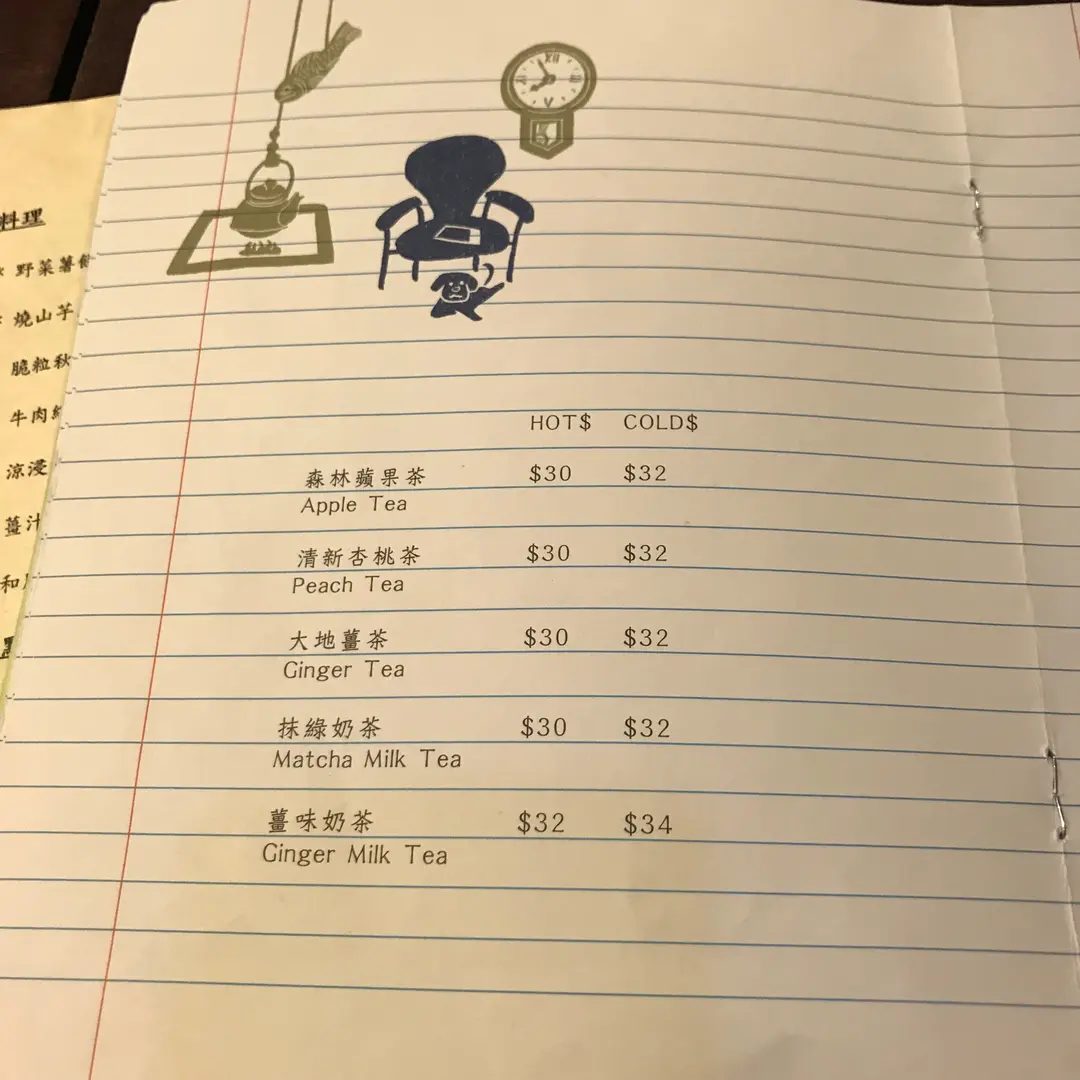 料理
野菜薯
燒山芋
脆粒秋
牛肉
涼浸
薑汁
和
HOT$ COLD$
森林蘋果茶 $30 $32
Apple Tea
清新杏桃茶 $30 $32
Peach Tea
大地薑茶 $30 $32
Ginger Tea
抹綠奶茶 $30 $32
Matcha Milk Tea
薑味奶茶 $32 $34
Ginger Milk Tea